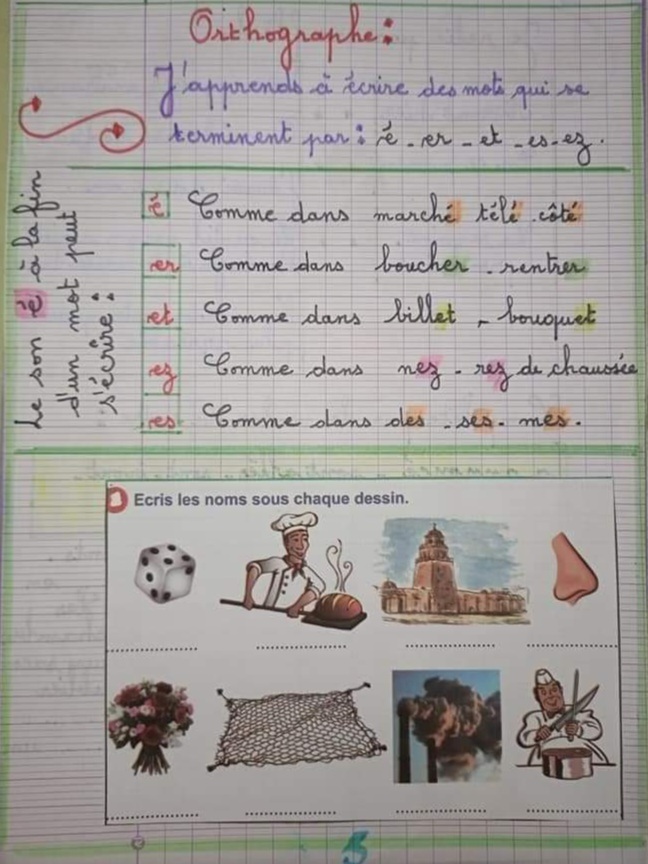 Orthographe:
J'apprends à écrire des mots qui se
terminent par: é - er - et - es - ez.
Le son é à la fin
d'un mot peut
s'écrire:
é Comme dans marché télé côté
er Comme dans boucher - rentrer
et Comme dans billet - bouquet
ez Comme dans nez - rez de chaussée
es Comme dans des - ses - mes.
Ecris les noms sous chaque dessin.